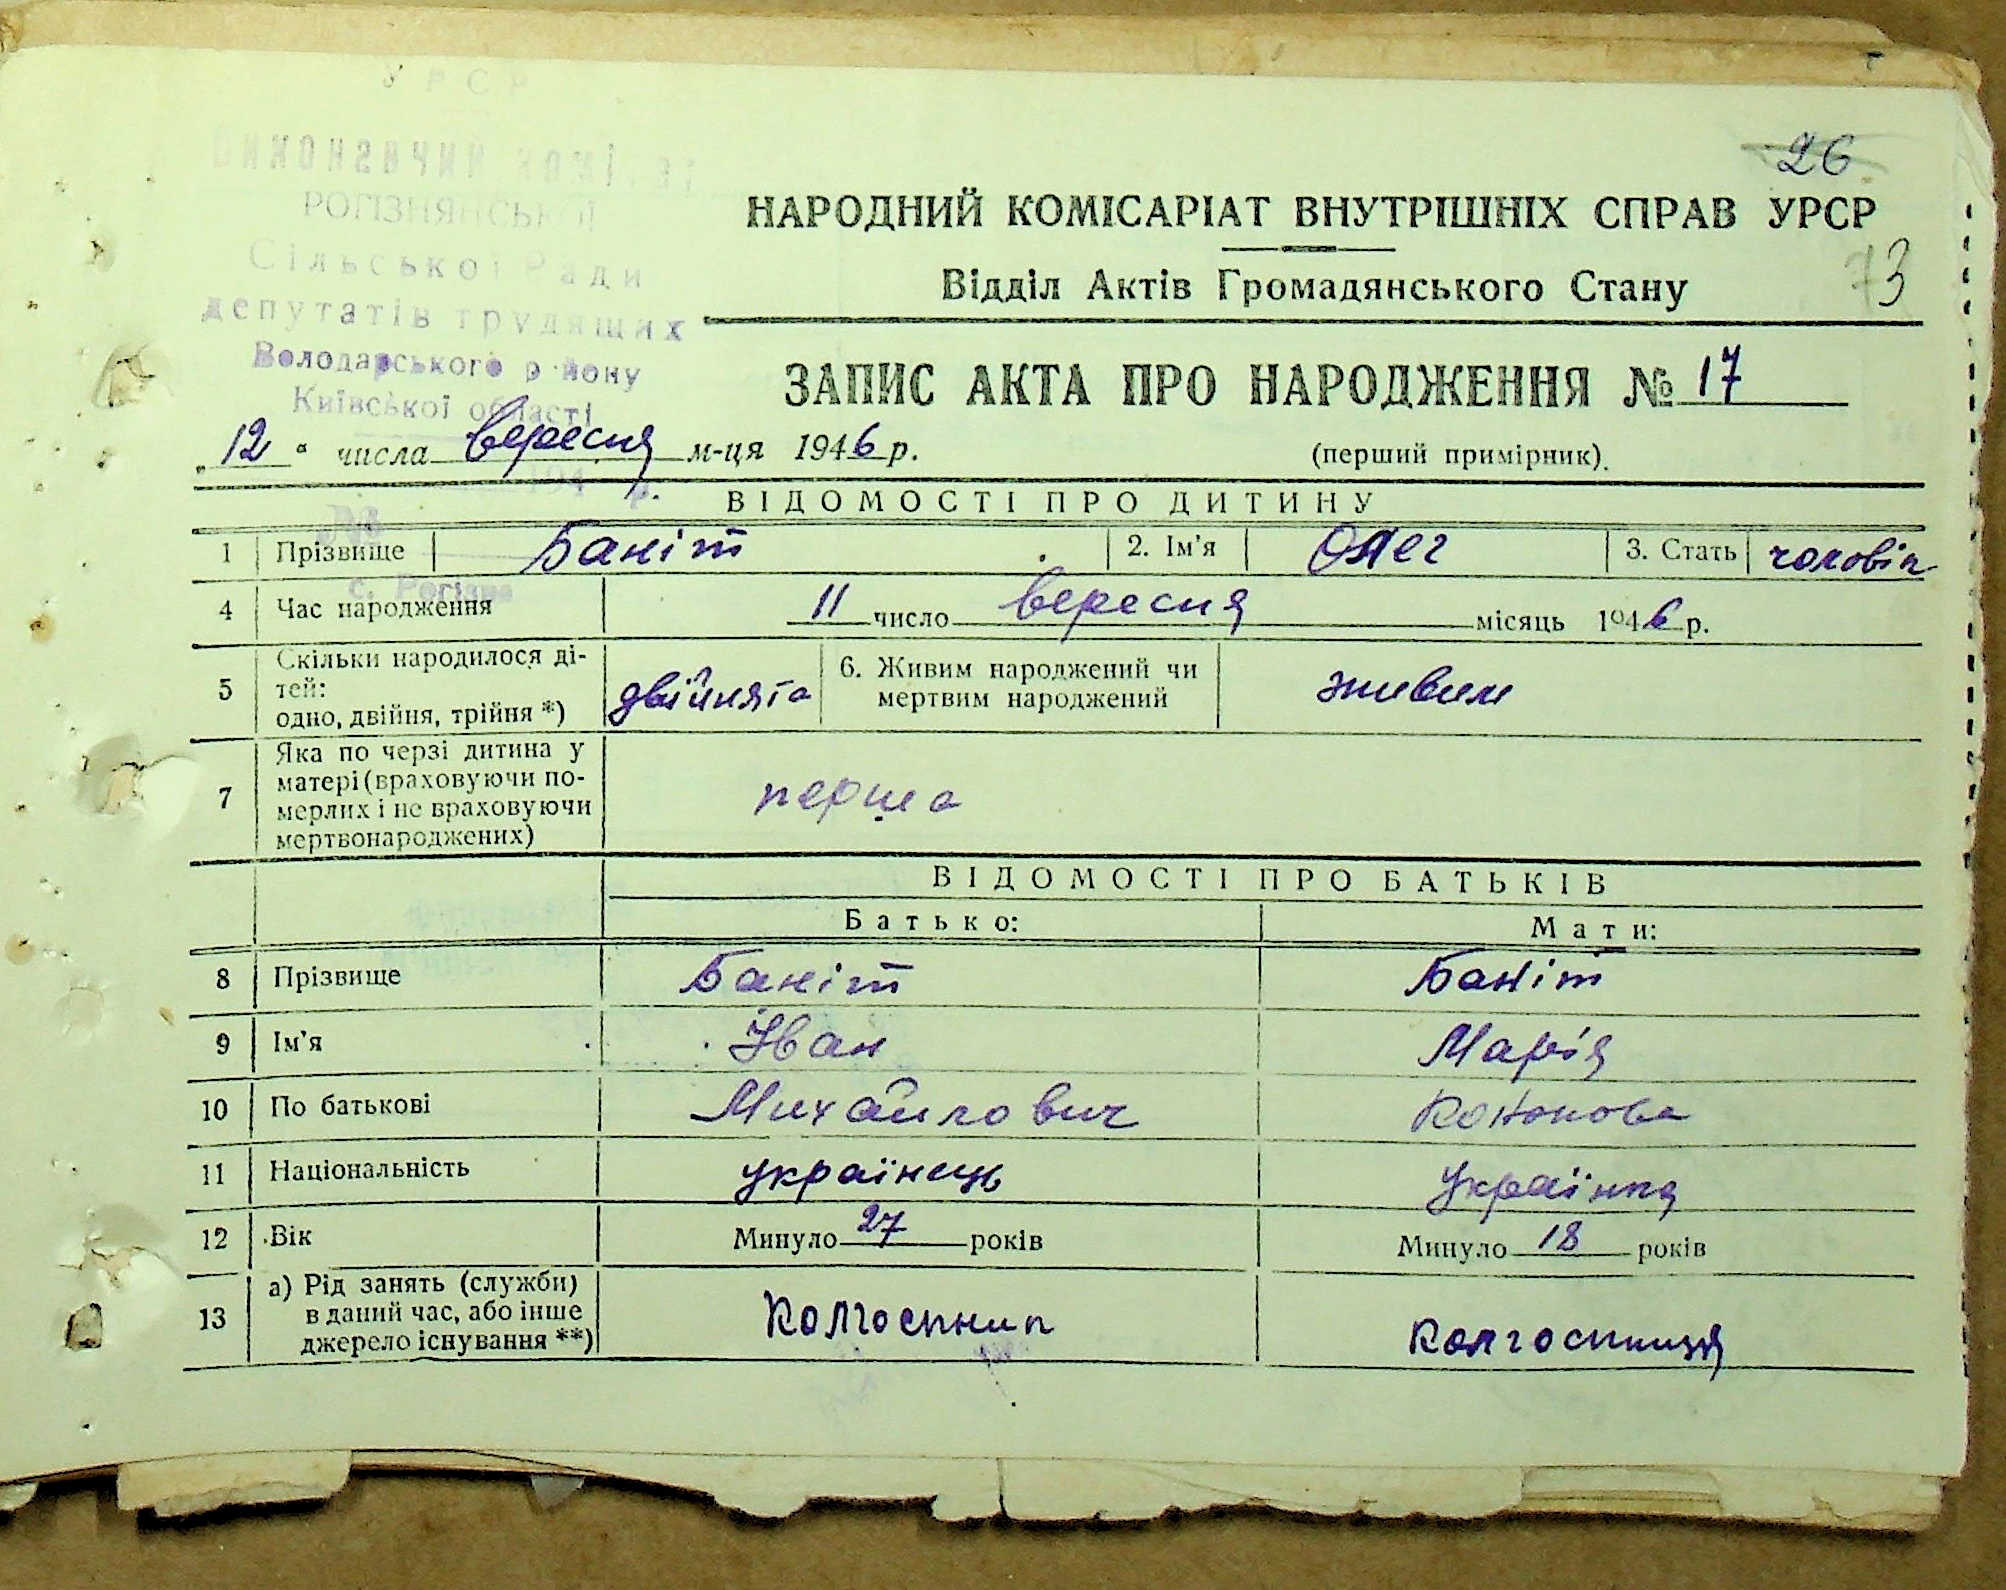 УРСР
Виконавчий коміт
РОГІЗНЯНСЬКОЇ
Сільської Ради
депутатів трудящих
Володарського району
Київської області
194 р.
№
с. Рогізна
26
НАРОДНИЙ КОМІСАРІАТ ВНУТРІШНІХ СПРАВ УРСР
Відділ Актів Громадянського Стану
73
ЗАПИС АКТА ПРО НАРОДЖЕННЯ № 17
„12“ числа вересня м-ця 1946 р. (перший примірник).
ВІДОМОСТІ ПРО ДИТИНУ
1 Прізвище Баніт 2. Ім'я Олег 3. Стать чоловік
4 Час народження 11 число вересня місяць 1946 р.
5 Скільки народилося ді-
тей:
одно, двійня, трійня *) двійнята
6. Живим народжений чи
мертвим народжений живим
7 Яка по черзі дитина у
матері (враховуючи по-
мерлих і не враховуючи
мертвонароджених) перша
ВІДОМОСТІ ПРО БАТЬКІВ
Батько: Мати:
8 Прізвище Баніт Баніт
9 Ім'я Іван Марія
10 По батькові Михайлович Кононова
11 Національність українець українка
12 Вік Минуло 27 років Минуло 18 років
13 а) Рід занять (служби)
в даний час, або інше
джерело існування **) Колгоспник колгоспниця